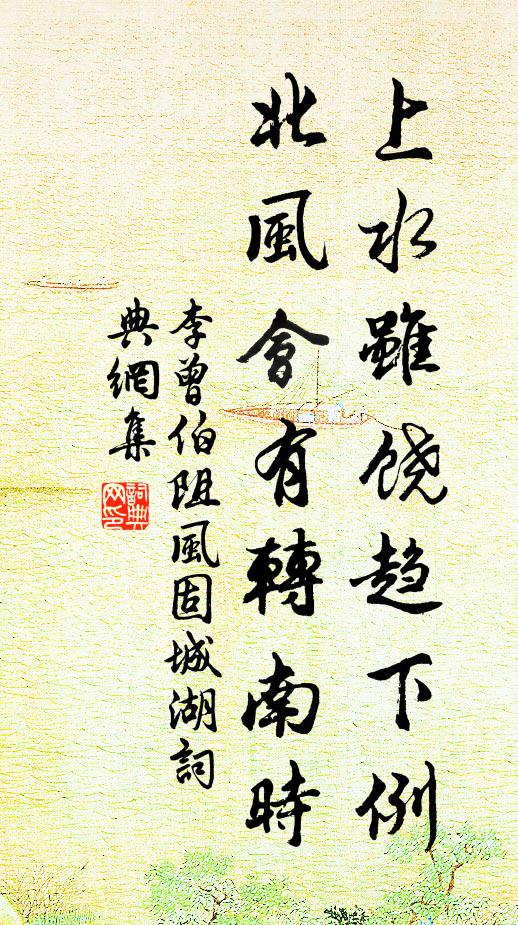 上水雖饶趋下例
北風會有轉南時
李曾伯阻風固城湖詞
典網集
詞典
网印